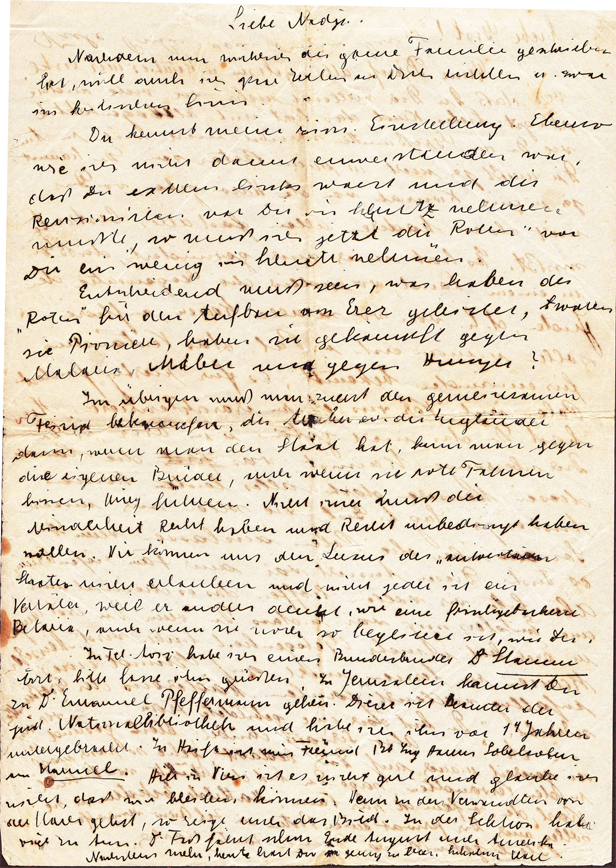 Liebe Nadja.
Nachdem nun mehrere die ganze Familie geschrieben
hat, will auch ich ganz Zeilen an Dich richten u. zwar
im
Du kennst meine zion. Einstellung. Ebenso
wie ich nicht damit einverstanden war,
daß Du extrem links warst und die
Revisionisten vor Dir in Schutz nehmen
mußte, so muß ich jetzt die "Roten" vor
Dir ein wenig in Schutz nehmen.
Entscheidend muß sein, was haben die
"Roten" für den Aufbau von Erez geleistet, waren
sie Pioniere, haben sie gekämpft gegen
Malaria, Araber und gegen Hunger?
Im übrigen muß man zuerst den gemeinsamen
Feind bekämpfen, die Araber ev. die Engländer
dann, wenn man den Staat hat, kann man gegen
die eigenen Brüder, auch wenn sie rote Fahnen
hissen, Krieg führen. Nicht immer muß die
Minderheit Recht haben und Recht unbedingt haben
wollen. Wir können uns den Luxus des "
Staates nicht erlauben und nicht jeder ist ein
Verräter, weil er anders denkt, wie eine frischgebackene
Betaria, auch wenn sie noch so begeistert ist, wie Du.
In Tel-Aviv habe ich einen Bundesbruder Dr
dort, bitte lasse ihn grüßen, in Jerusalem kannst Du
zu Dr. Emanuel Pfeffermann gehen. Dieser ist Beamter der
jüd. Nationalbibliothek und habe ich ihn vor 14 Jahren
untergebracht. In Haifa ist mein Freund Ing Hanns
am Karmel. Hier in Wien ist es nicht gut und glaube ich
nicht, daß wir bleiben können. Wenn zu den Verwandten von
der gehst, so zeige und das Bild. In der Sektion habe
viel zu tun. Dr. fährt schon Ende August nach Amerika.
Nächstens mehr, heute hast Du genug zu lesen.